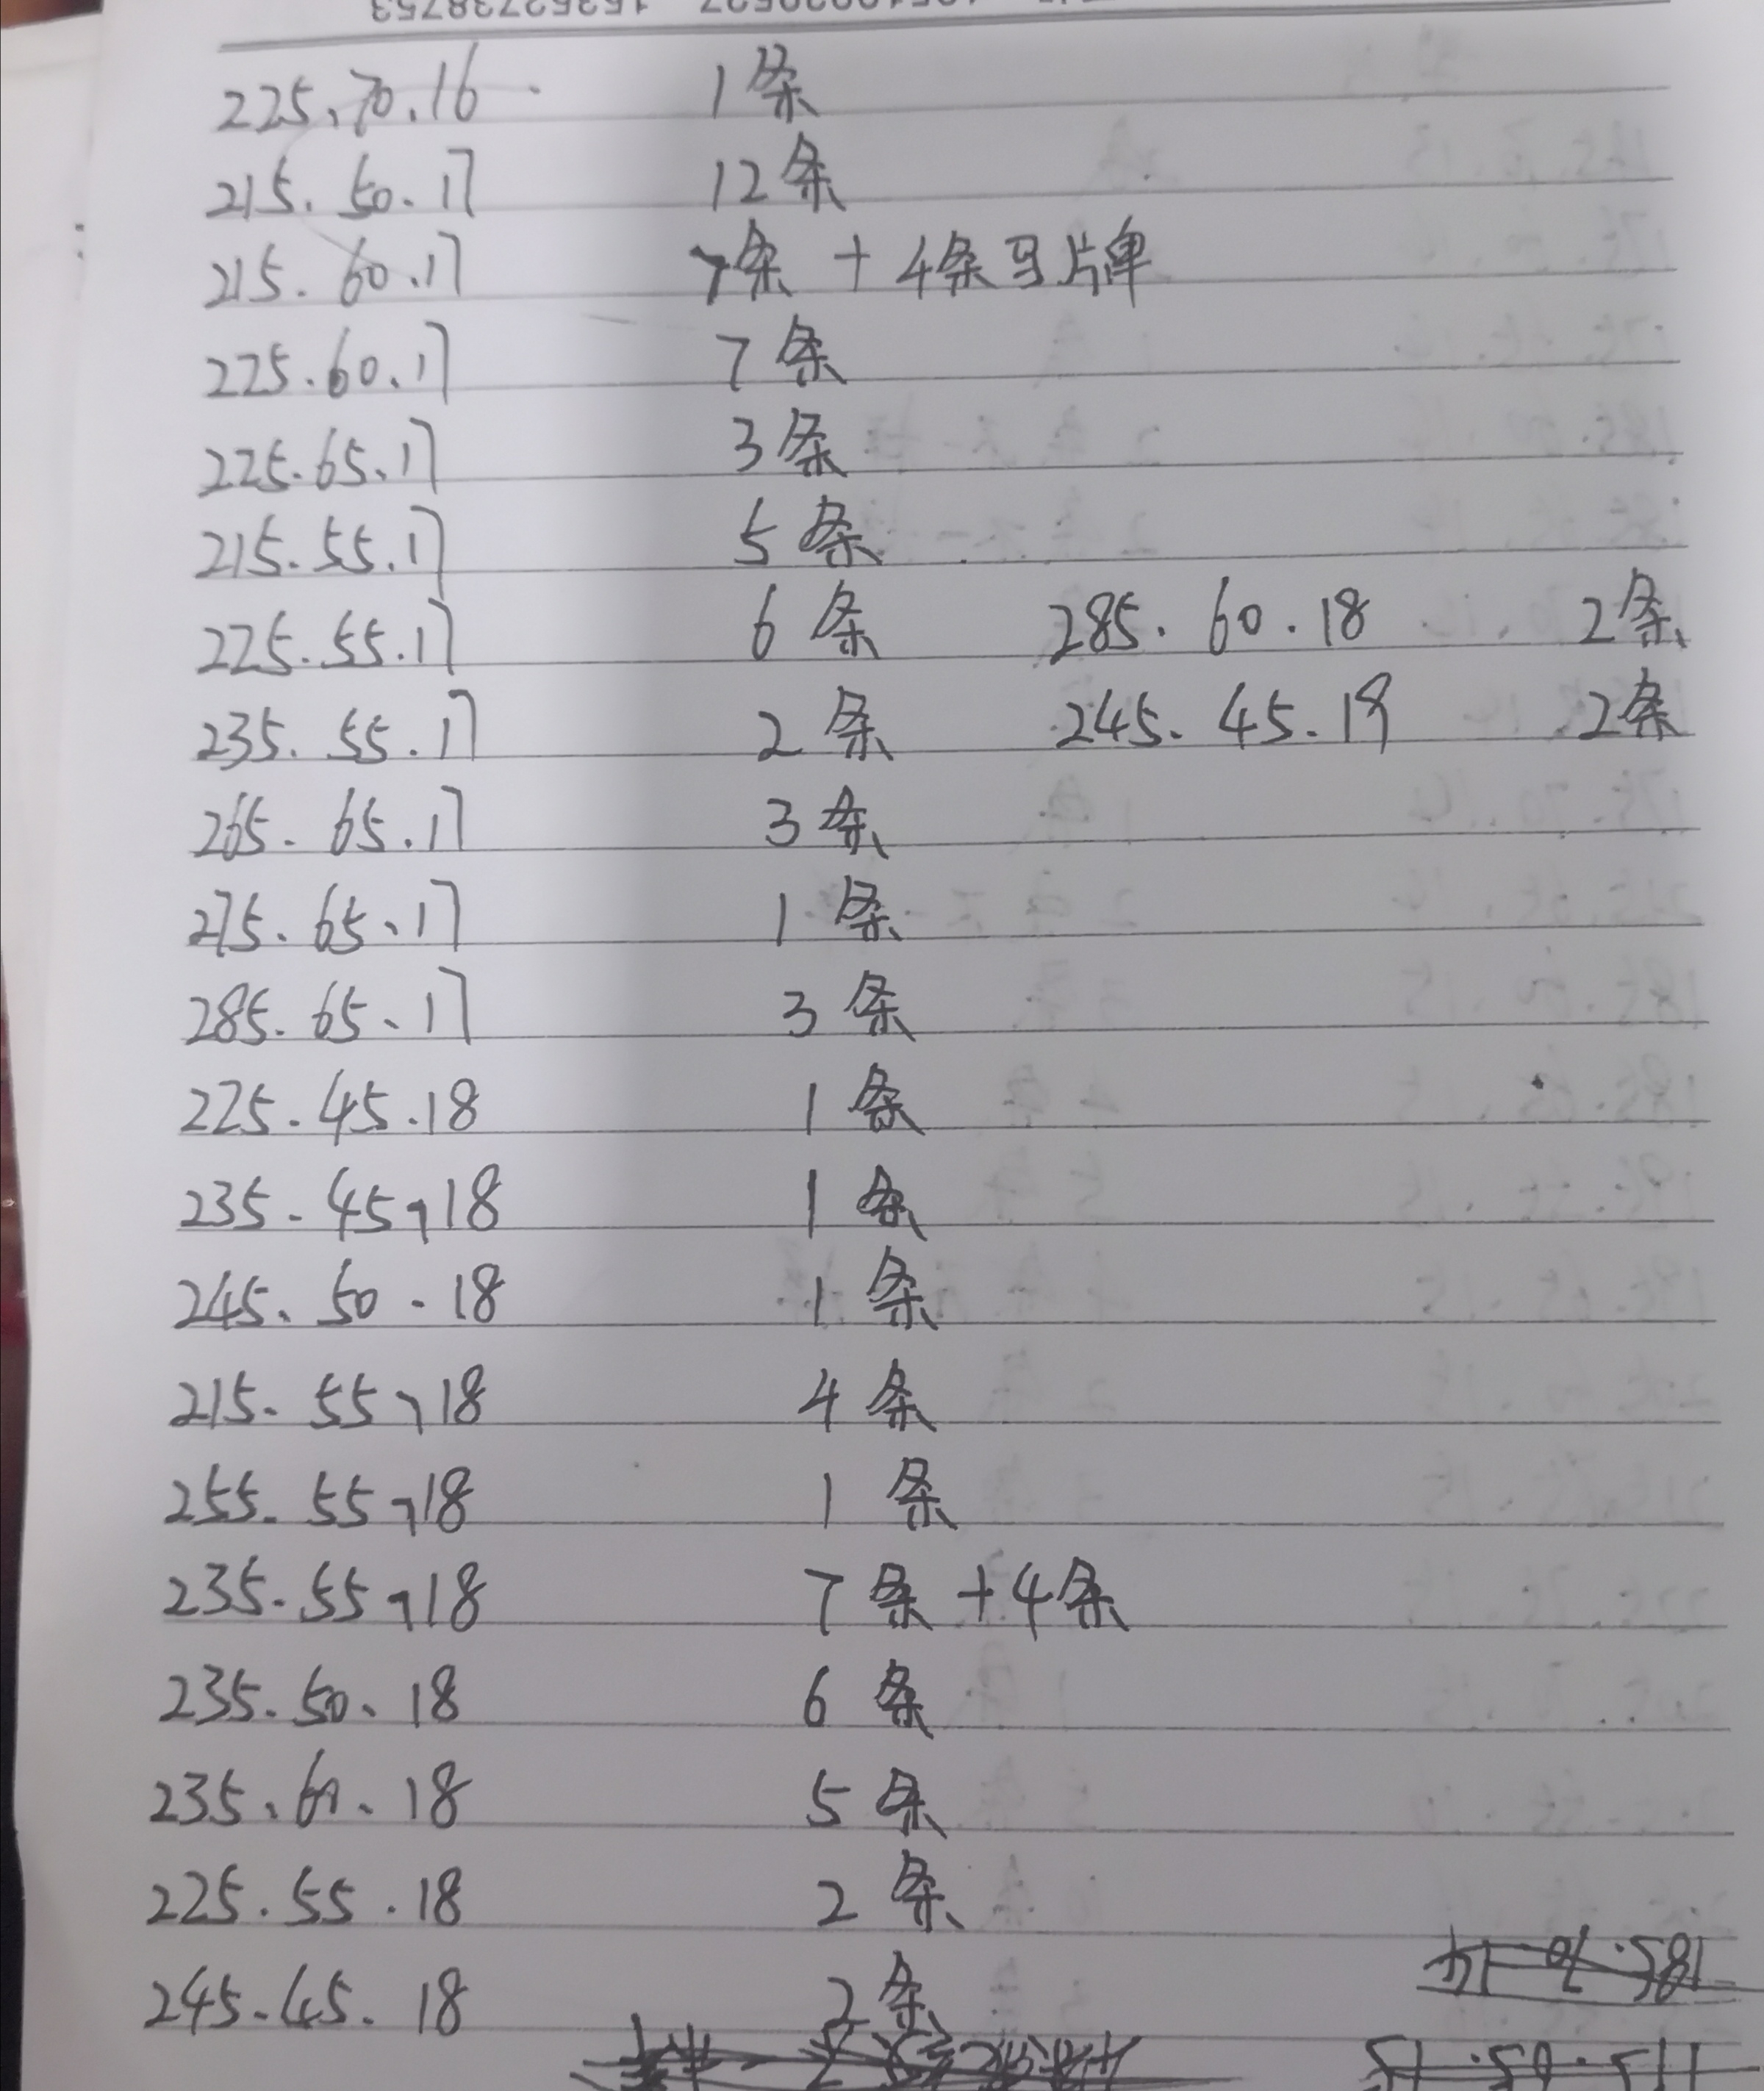 225、70.16 1条
215. 50. 17 12条
215. 60.17 7条 + 4条马牌
225.60.17 7条
225.65.17 3条
215.55.17 5条
225.55.17 6条 285. 60. 18 2条
235. 55.17 2条 245. 45. 19 2条
265. 65.17 3条
275. 65、17 1条
285. 65、17 3条
225. 45.18 1条
235. 45、18 1条
245. 50. 18 1条
215. 55、18 4条
255. 55、18 1条
235. 55、18 7条 + 4条
235. 50、18 6条
235、60、18 5条
225. 55. 18 2条
245. 45. 18 2条